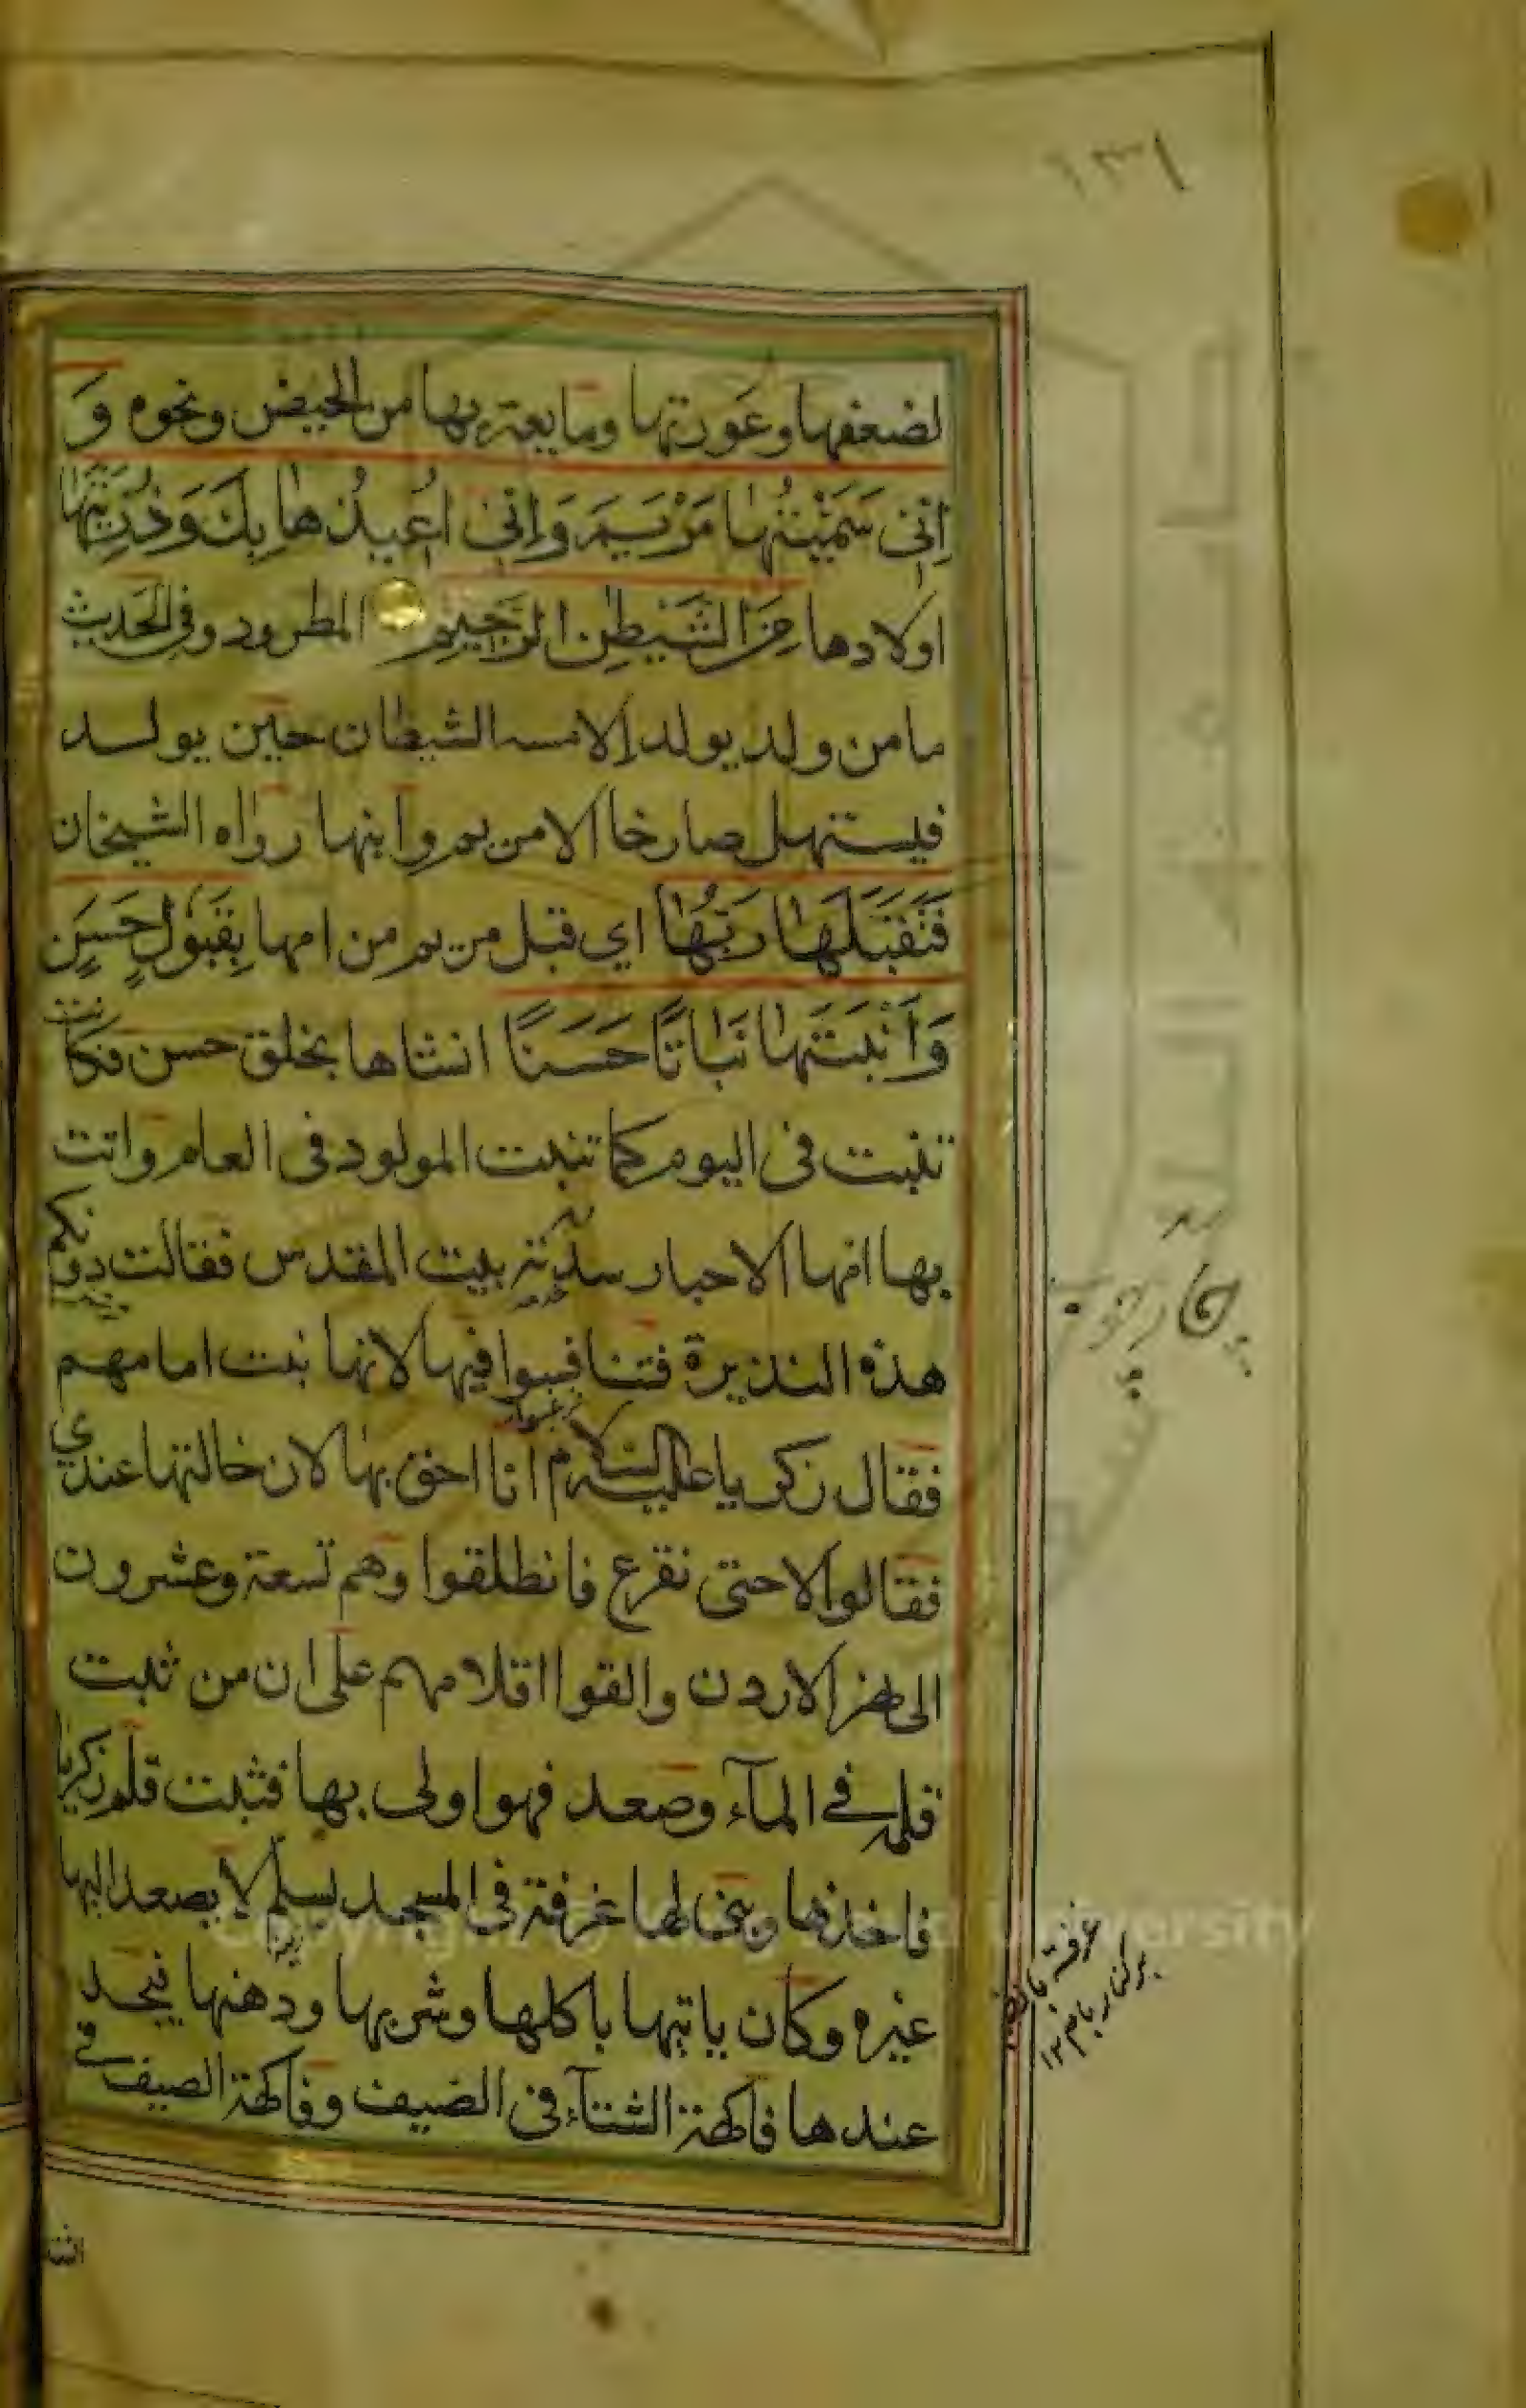 ١٣١
لضعفها وعورتها وما يعتريها من الحيض ونحوه وَ
اِنِّى سَمَّيْتُهَا مَرْيَمَ وَاِنِّى اُعِيذُهَا بِكَ وَذُرِّيَّتَهَا
اولادها مِنَ الشَّيْطٰنِ الرَّجِيْمِ المطرود وفى الحديث
ما من ولد يولد الا مسه الشيطان حين يولد
فيستهل صارخا الا مريم وابنها رواه الشيخان
فَتَقَبَّلَهَا رَبُّهَا اي قبل مريم من امها بِقَبُوْلٍ حَسَنٍ
وَاَنْبَتَهَا نَبَاتًا حَسَنًا انشاها بخلق حسن فكانت
تنبت فى اليوم كما تنبت المولود فى العام واتت
بها امها الاحبار سدنة بيت المقدس فقالت دونكم
هذه النذيرة فتنافسوا فيها لانها بنت امامهم
فقال زكريا عليه السلام انا احق بها لان خالتها عندي
فقالوا لا حتى نقرع فانطلقوا وهم تسعة وعشرون
الى نهر الاردن والقوا اقلامهم على ان من ثبت
قلمه في المآء وصعد فهو اولى بها فثبت قلم زكريا
فاخذها وبنى لها غرفة فى المسجد بسلم لا يصعد اليها
غيره وكان ياتيها باكلها وشربها ودهنها فيجد
عندها فاكهة الشتآء فى الصيف وفاكهة الصيف في
غرفة
بر كنار بام ١٢
الشتا
Copyright © University